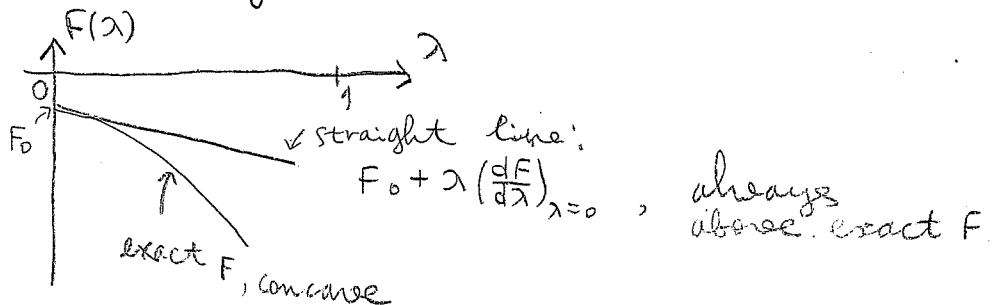 F(λ)
λ
0
1
F₀
straight line:
F₀ + λ (dF/dλ)_{λ=0} , always
above exact F
exact F, concave